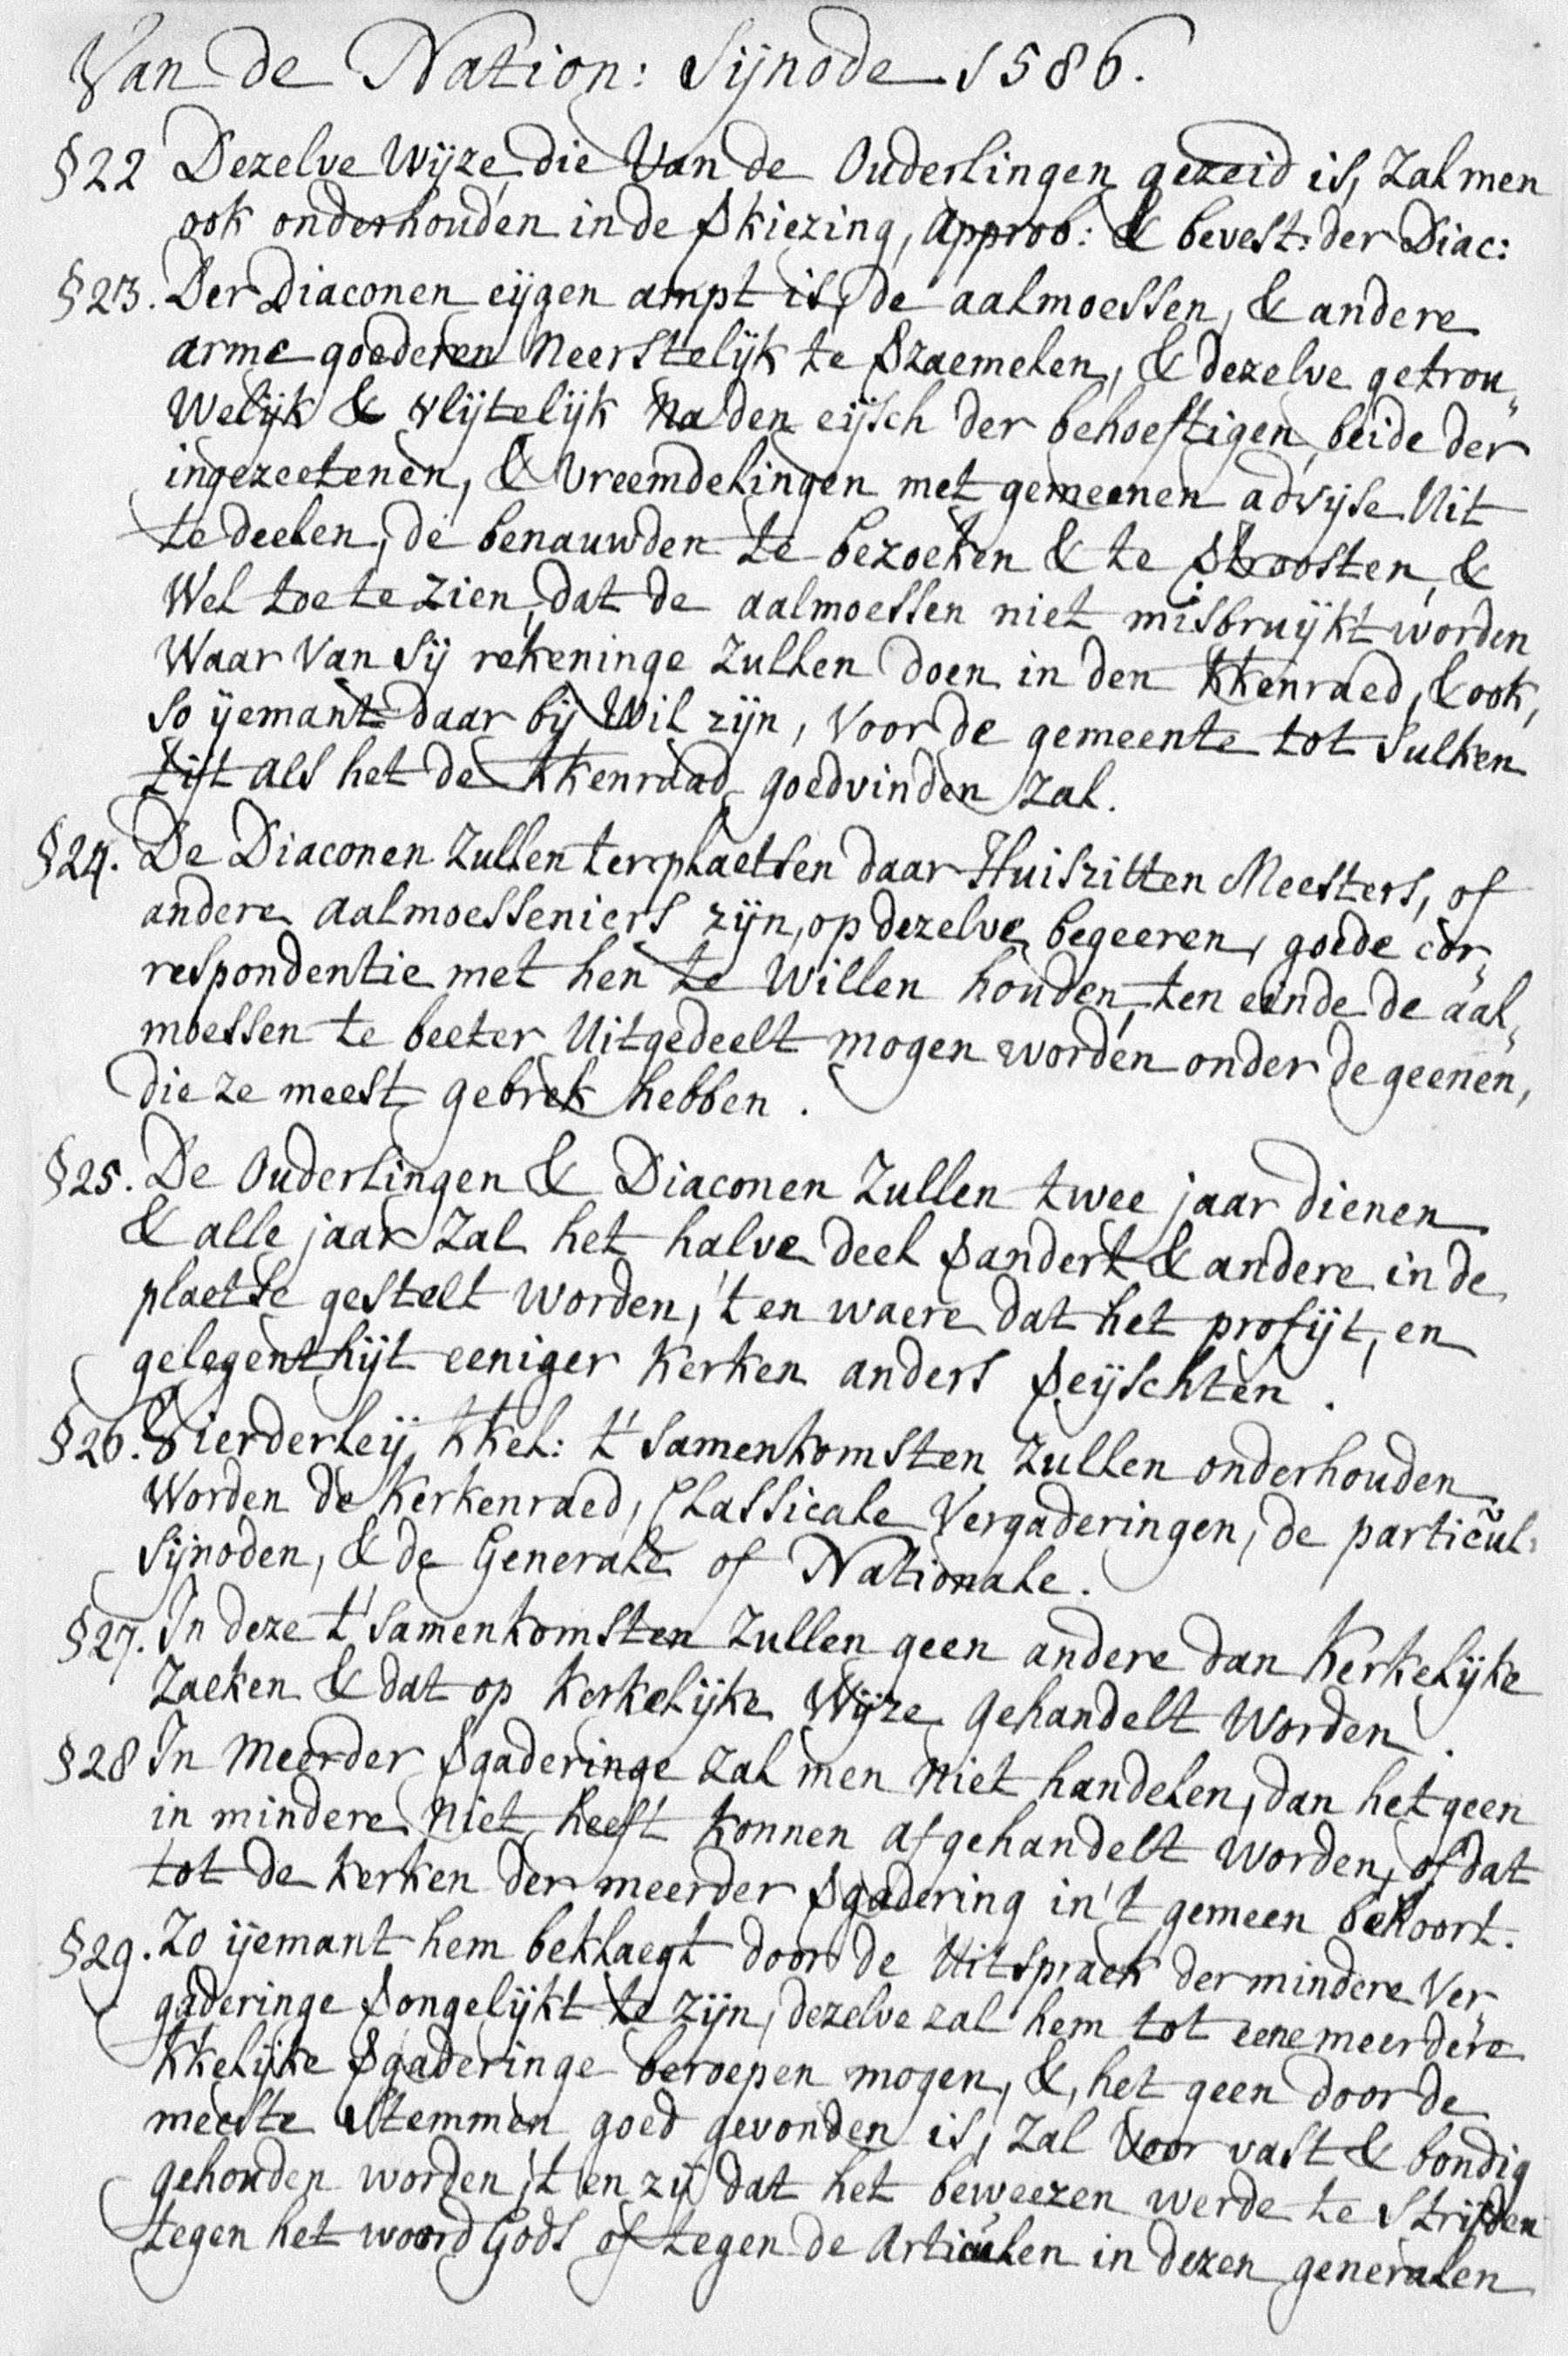 Van de Nation: Sijnode 1586.
§22 Dezelve wijze, die van de Ouderlingen gezeid is, zal men
ook onderhouden in de $kiezing, approb: & bevest: der Diac:
§23. Der Diaconen eijgen ampt is, de aalmoessen, & andere
arme goederen neerstelijk te $zaemelen, & dezelve getrou„
welijk & vlijtelijk na den eijsch der behoeftigen, beide der
ingezeetenen, & vreemdelingen met gemeenen advijse uit
te deelen, de benauwden te bezoeken & te $troosten, &
wel toe te zien, dat de aalmoessen niet misbruijkt worden
waar van sij rekeninge zullen doen in den kkenraed, & ook,
so ijemant daar bij wil zijn, voor de gemeente tot sulken
tijt als het de kkenraad goedvinden zal.
§24. De Diaconen zullen ter plaetsen daar Huiszitten Meesters, of
andere aalmoesseniers zijn, op dezelve begeeren, goede cor„
respondentie met hen te willen houden, ten einde de aal„
moessen te beeter uitgedeelt mogen worden onder de geenen,
die ze meest gebrek hebben.
§25. De Ouderlingen & Diaconen zullen twee jaar dienen
& alle jaar zal het halve deel $andert & andere in de
plaetse gestelt worden, 't en waere dat het profijt, en
gelegentheijt eeniger kerken anders $eijschten.
§26. Vierderleij kkel: t'samenkomsten zullen onderhouden
worden de kerkenraed, Classicale Vergaderingen, de particul:
Sijnoden, & de Generale of Nationale.
§27. In deze t'samenkomsten zullen geen andere dan kerkelijke
zaeken & dat op kerkelijke wijze gehandelt worden.
§28 In meerder $gaderinge zal men niet handelen, dan het geen
in mindere niet heeft konnen afgehandelt worden, of dat
tot de kerken der meerder $gadering in 't gemeen behoort.
§29. Zo ijemant hem beklaegt door de uitspraek der mindere Ver„
gaderinge $ongelijkt te zijn, dezelve zal hem tot eene meerdere
kkelijke $gaderinge beroepen mogen, &, het geen door de
meeste stemmen goed gevonden is, zal voor vast & bondig
gehouden worden, 't en zij dat het beweezen werde te strijden
tegen het woord Gods of tegen de Articulen in dezen generalen